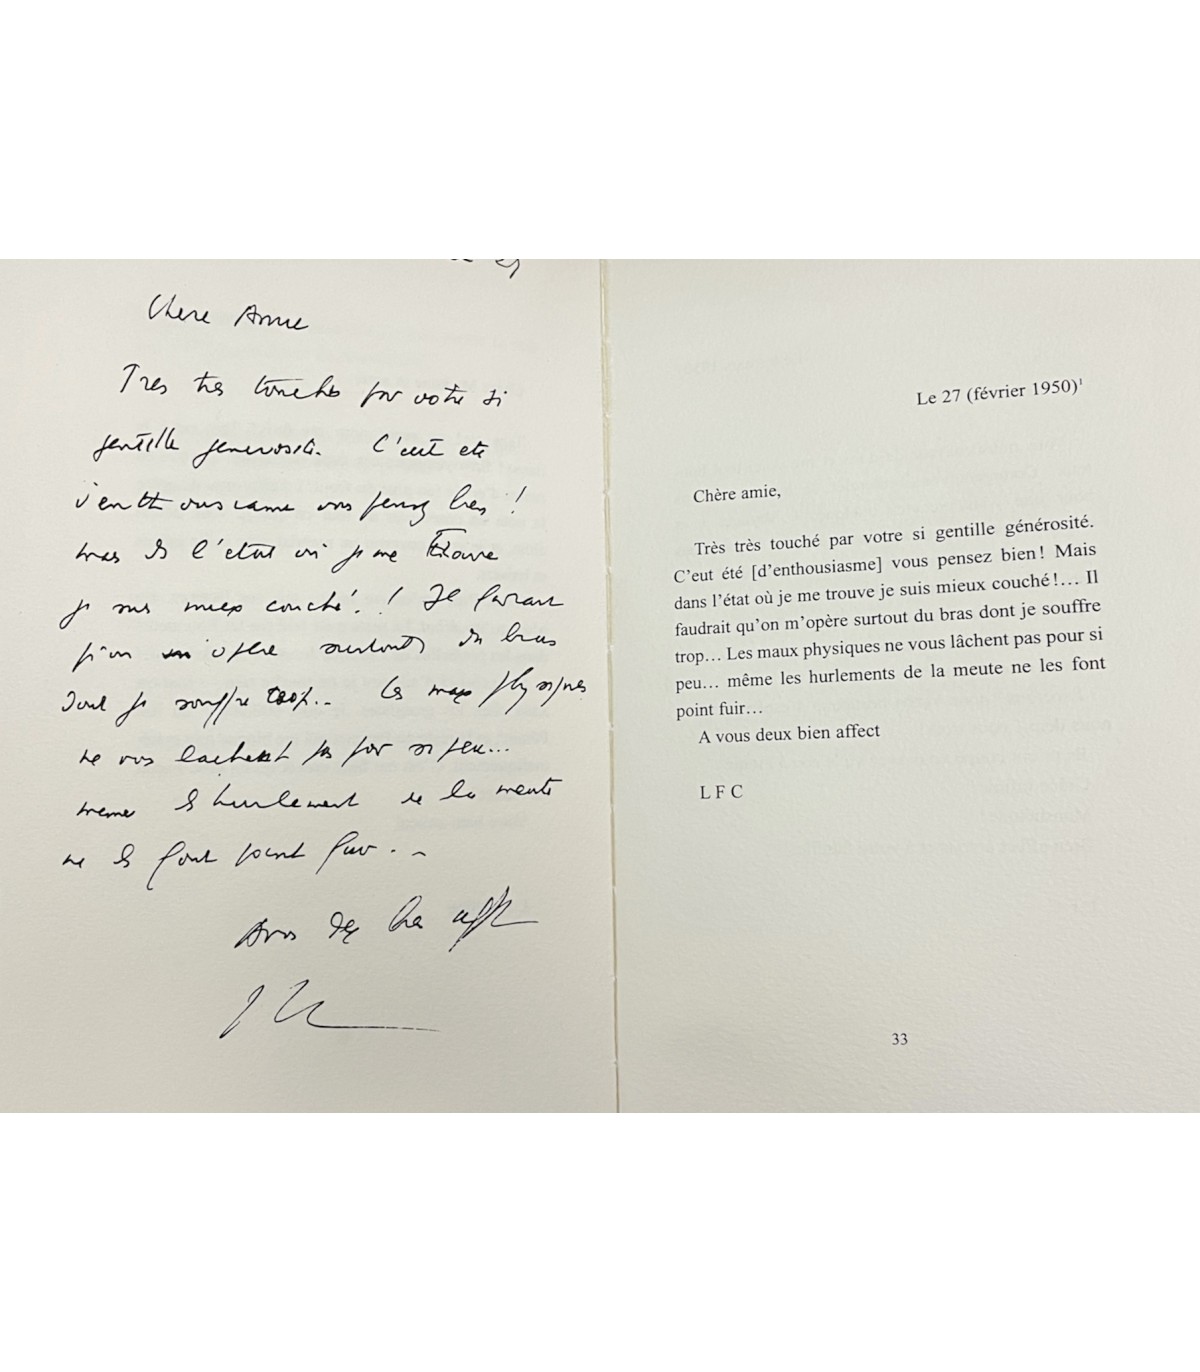 Chere Amie
Tres tres touché par votre si
gentille generosité. C'eut ete
d'enthousiasme vous pensez bien !
mais ds l'etat où je me trouve
je suis mieux couché ! Il faudrait
qu'on m'opere surtout du bras
dont je souffre trop... Les maux physiques
ne vous lachent pas pour si peu...
meme les hurlement de la meute
ne les font point fuir...
A vous deux bien affect
Le 27 (février 1950)¹
Chère amie,
Très très touché par votre si gentille générosité.
C'eut été [d'enthousiasme] vous pensez bien ! Mais
dans l'état où je me trouve je suis mieux couché !... Il
faudrait qu'on m'opère surtout du bras dont je souffre
trop... Les maux physiques ne vous lâchent pas pour si
peu... même les hurlements de la meute ne les font
point fuir...
A vous deux bien affect
L F C
33